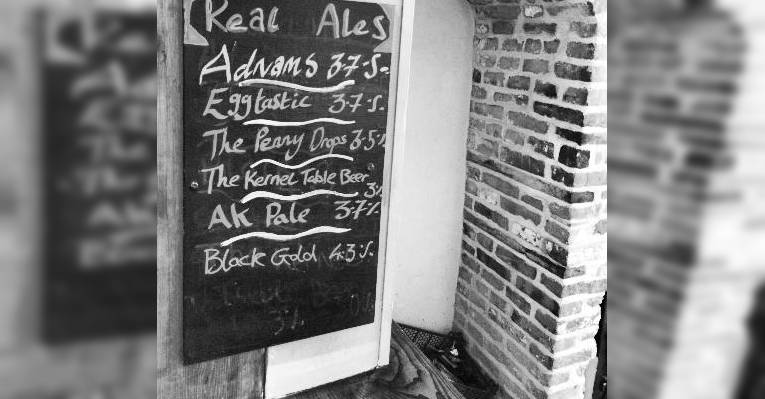 Real Ales
Adnams 3.7%
Eggtastic 3.7%
The Penny Drops 3.5%
The Kernel Table Beer
3%
AK Pale 3.7%
Black Gold 4.3%
3%